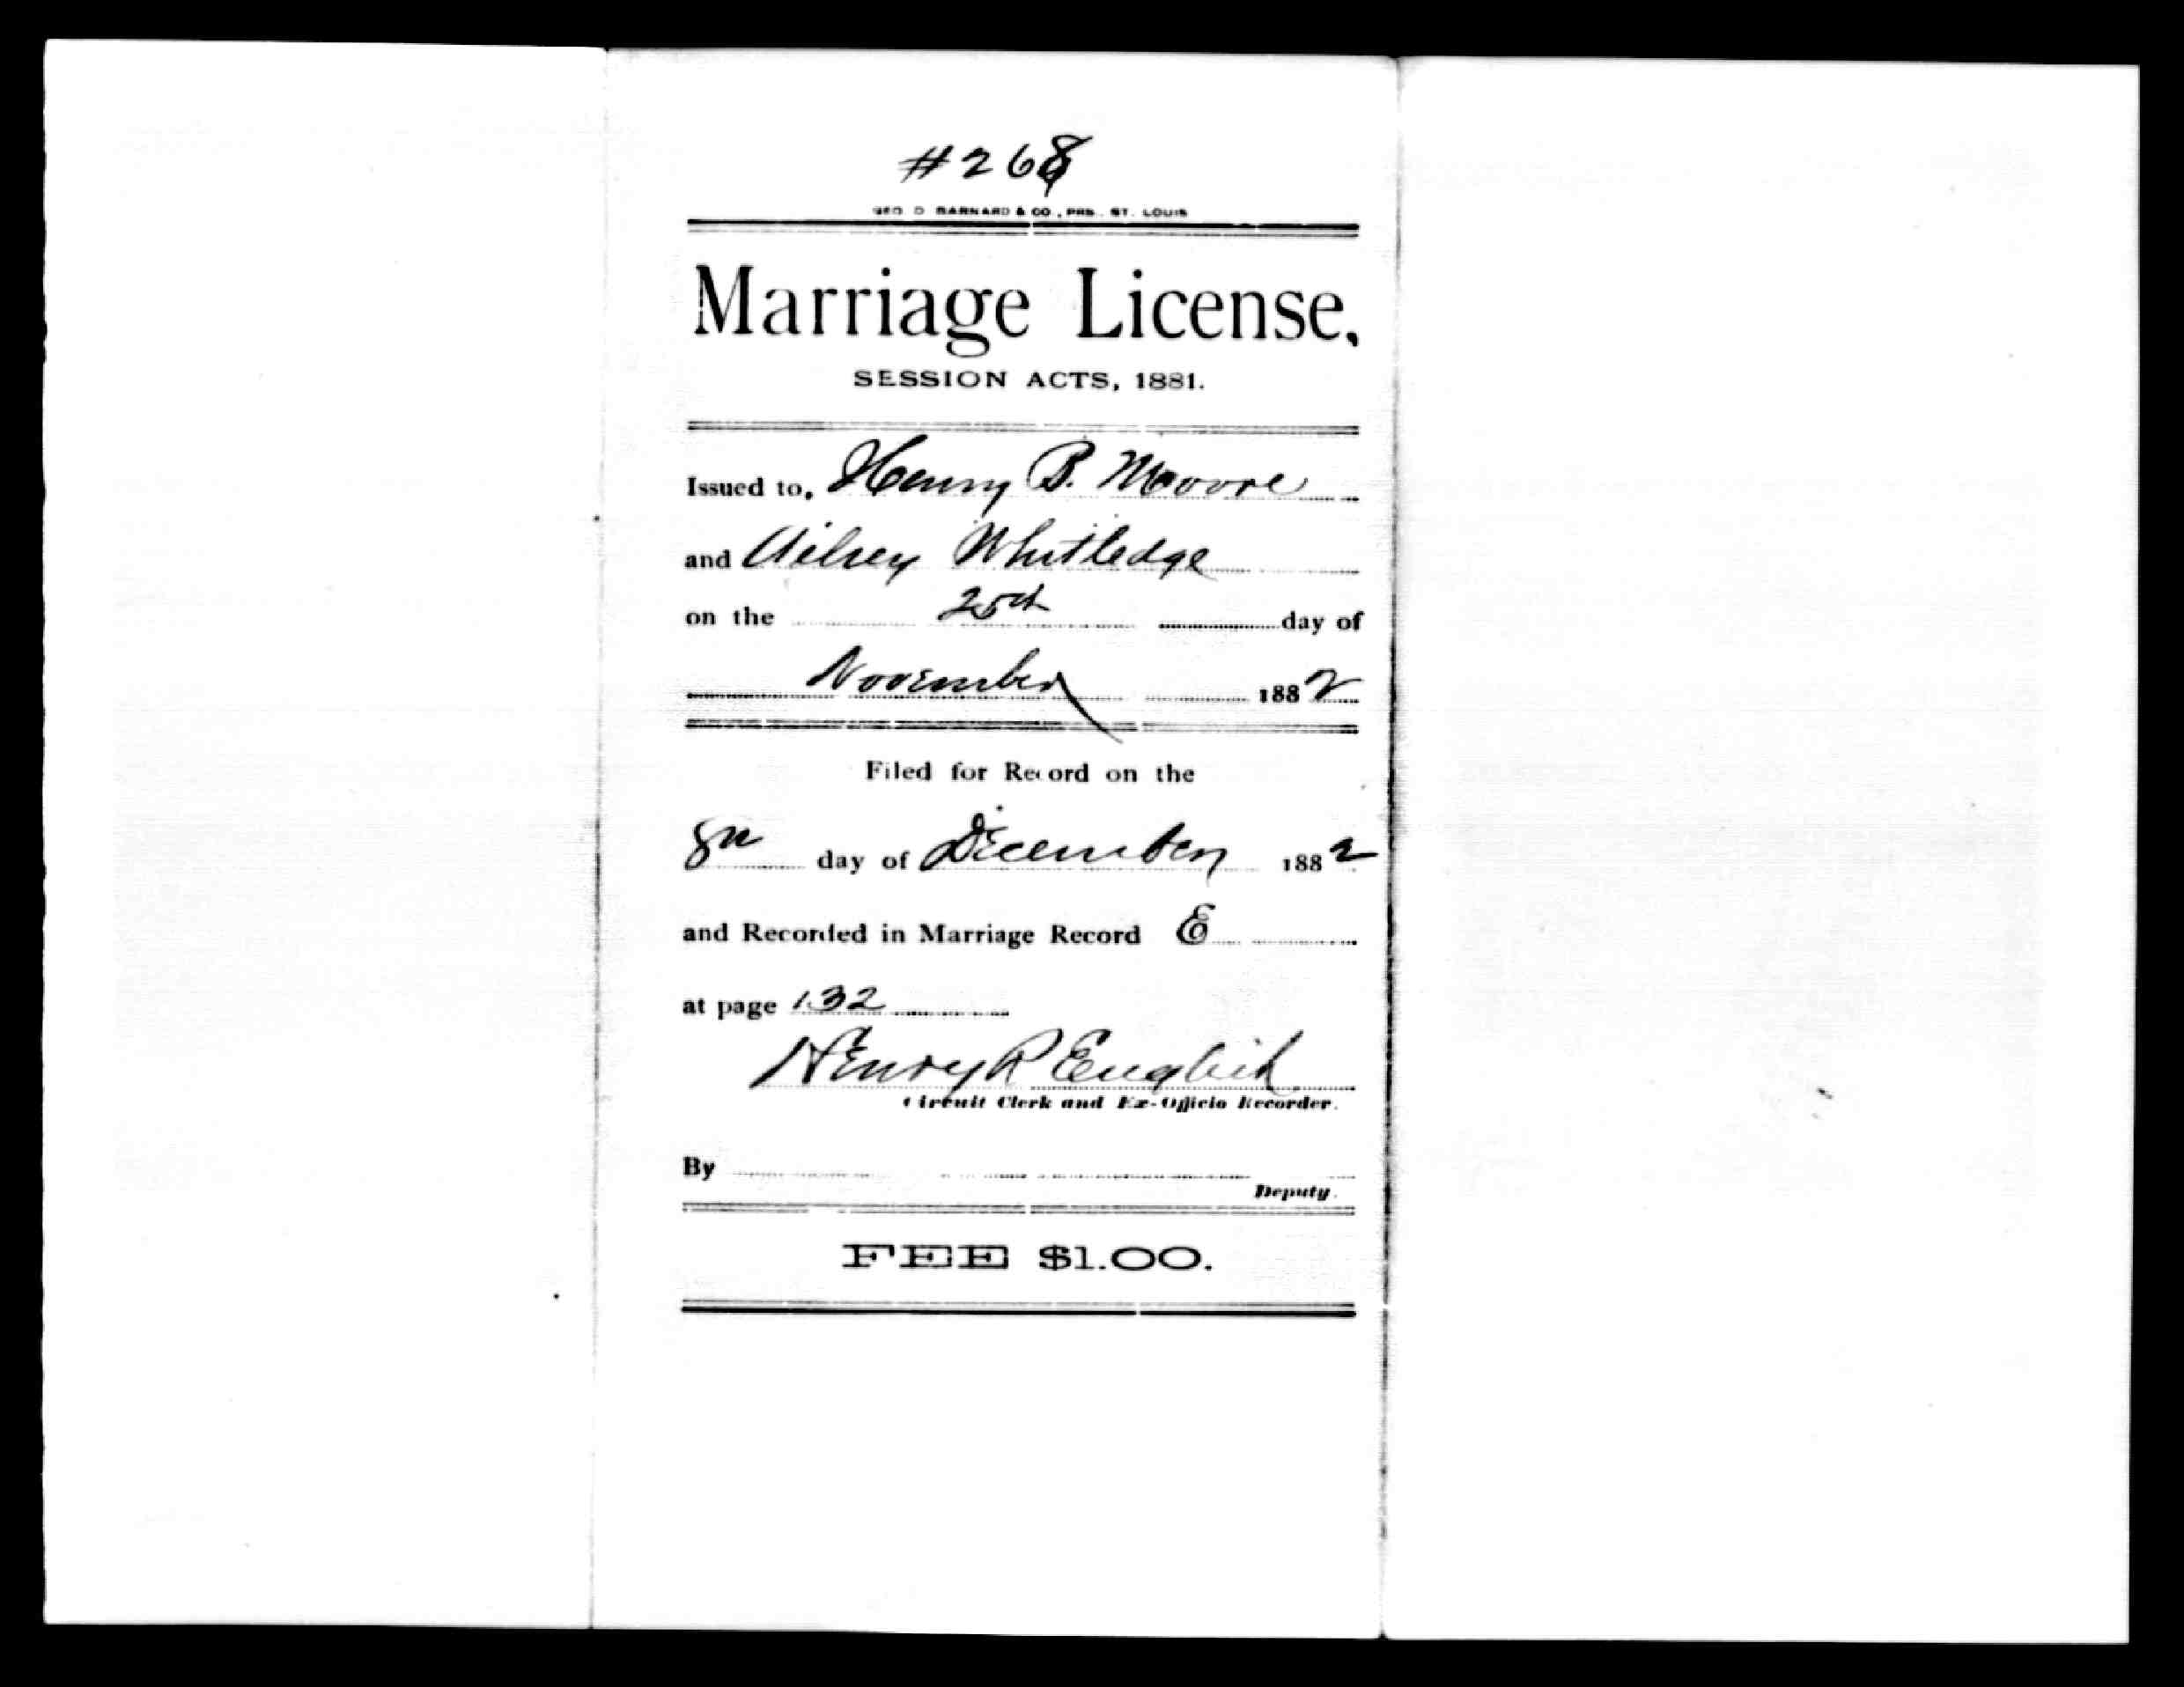 #268
GEO. D. BARNARD & CO., PRS. ST. LOUIS
Marriage License,
SESSION ACTS, 1881.
Issued to, Henry B. Moore
and Ailsey Whitledge
on the 25th day of
November 1882
Filed for Record on the
8th day of December 1882
and Recorded in Marriage Record E
at page 132
Henry R English
Circuit Clerk and Ex-Officio Recorder.
By
Deputy.
FEE $1.00.